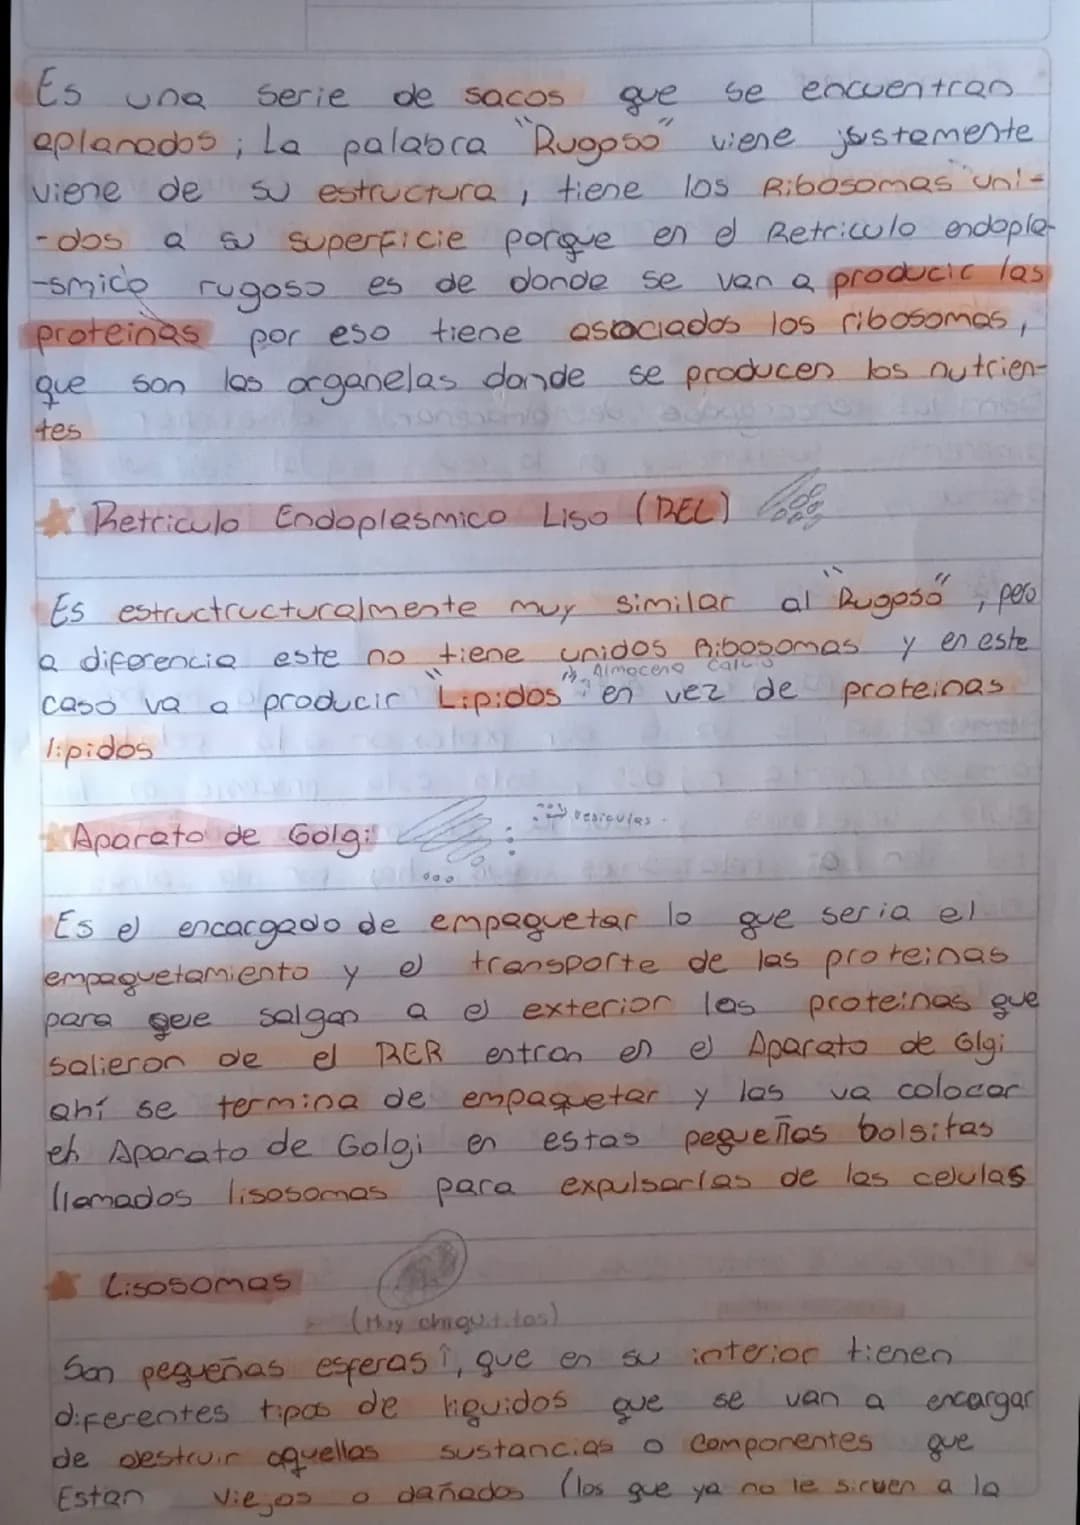 Es una serie de sacos que se encuentran
aplanados ; La palabra "Rugoso" viene justamente
viene de su estructura , tiene los Ribosomas uni-
-dos a su superficie porque en el Retriculo endopla-
-smico rugoso es de donde se van a producir las
proteinas por eso tiene asociados los ribosomas ,
que son las organelas donde se producen los nutrien-
tes
Retriculo Endoplasmico Liso (REL)
Es estructructuralmente muy similar al "Rugoso" , pero
a diferencia este no tiene unidos Ribosomas y en este
Almacena Calcio
caso va a producir "Lipidos" en vez de proteinas
lipidos
Aparato de Golgi
vesiculas
Es el encargado de empaquetar lo que seria el
empaquetamiento y el transporte de las proteinas
para que salgan a el exterior las proteinas que
salieron de el RER entran en el Aparato de Glgi
ahí se termina de empaquetar y las va colocar
eh Aparato de Golgi en estas pequeñas bolsitas
llamados lisosomas para expulsarlas de las celulas
Lisosomas
(Muy chiquititos)
Son pequeñas esferas , que en su interior tienen
diferentes tipos de liquidos que se van a encargar
de destruir aquellas sustancias o componentes que
Estan viejos o dañados (los que ya no le sirven a la